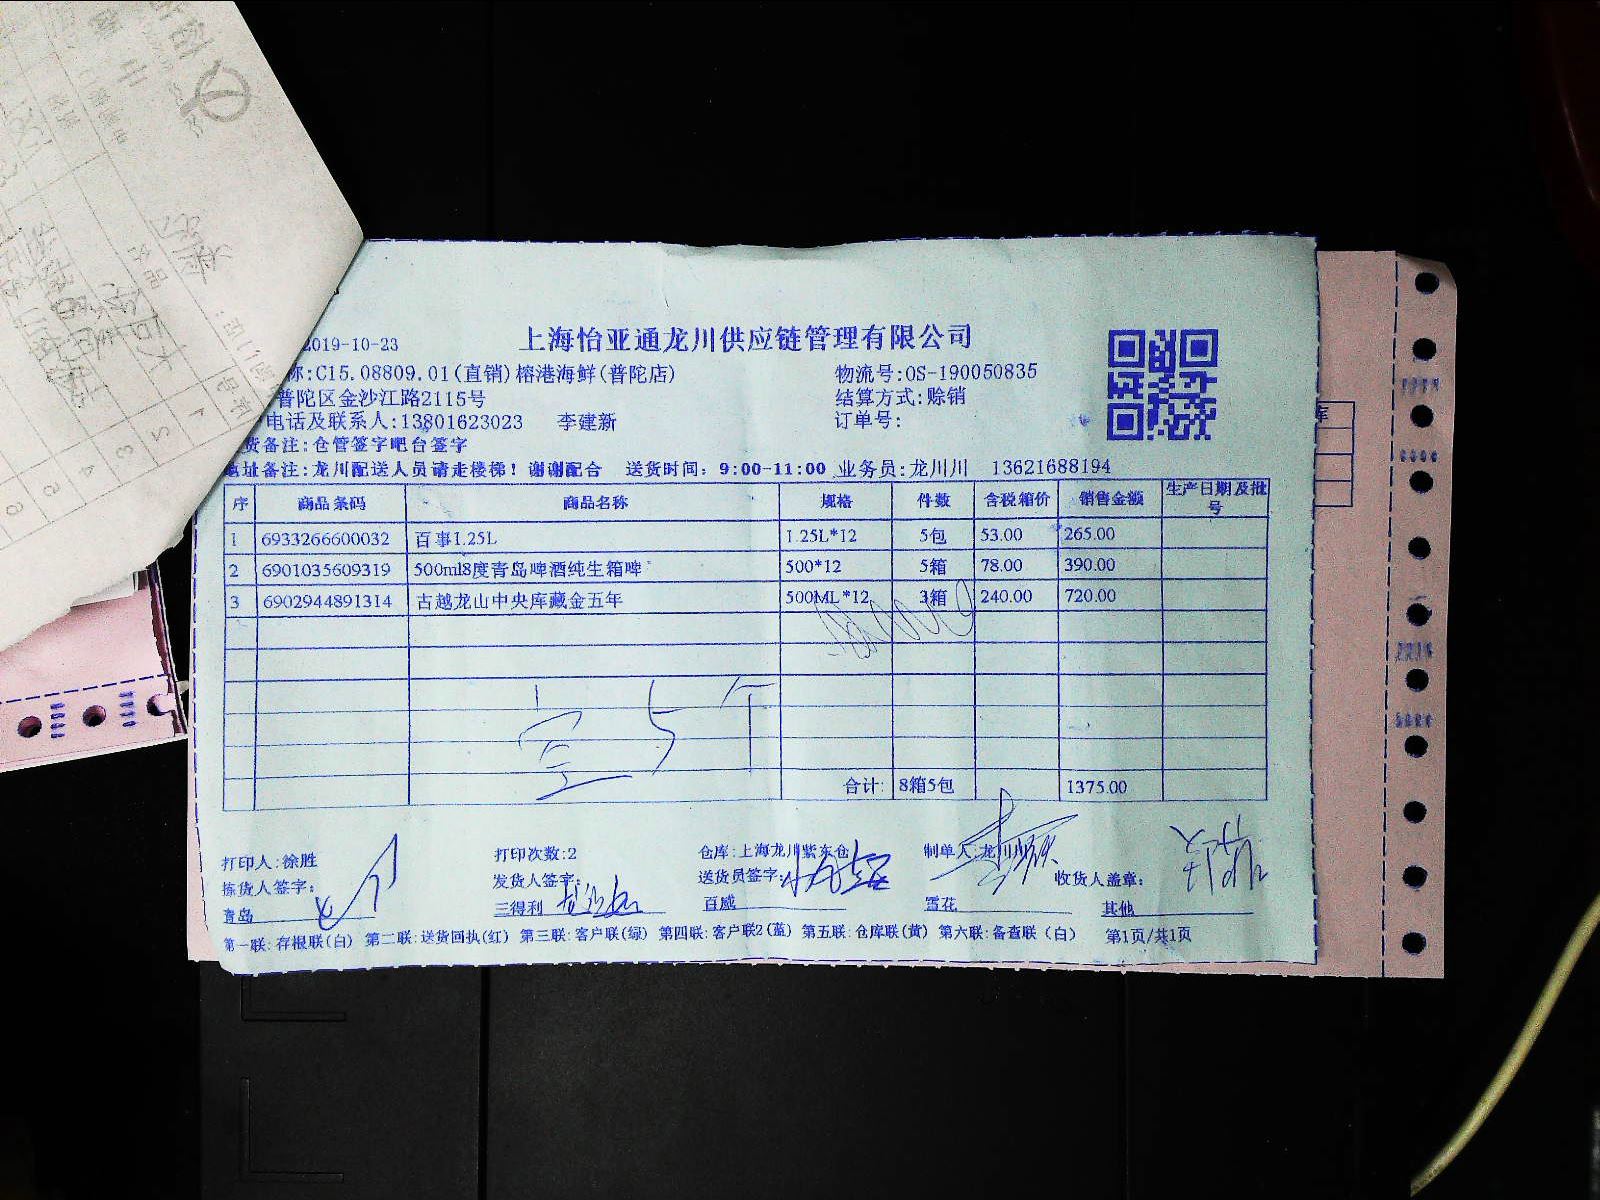 2019-10-23
上海怡亚通龙川供应链管理有限公司
称:C15.08809.01(直销)榕港海鲜(普陀店)
物流号:OS-190050835
普陀区金沙江路2115号
结算方式:赊销
电话及联系人:13801623023 李建新
订单号:
货备注:仓管签字吧台签字
地址备注:龙川配送人员请走楼梯！谢谢配合 送货时间：9:00-11:00 业务员:龙川川 13621688194
序 商品条码 商品名称 规格 件数 含税箱价 销售金额 生产日期及批号
1 6933266600032 百事1.25L 1.25L*12 5包 53.00 265.00
2 6901035609319 500ml8度青岛啤酒纯生箱啤 500*12 5箱 78.00 390.00
3 6902944891314 古越龙山中央库藏金五年 500ML*12 3箱 240.00 720.00
空 5个
合计: 8箱5包 1375.00
打印人:徐胜 打印次数:2 仓库:上海龙川紫东仓 制单人:龙川川
拣货人签字: 发货人签字: 送货员签字: 收货人盖章:
青岛 三得利 百威 雪花 其他
第一联:存根联(白) 第二联:送货回执(红) 第三联:客户联(绿) 第四联:客户联2(蓝) 第五联:仓库联(黄) 第六联:备查联(白) 第1页/共1页